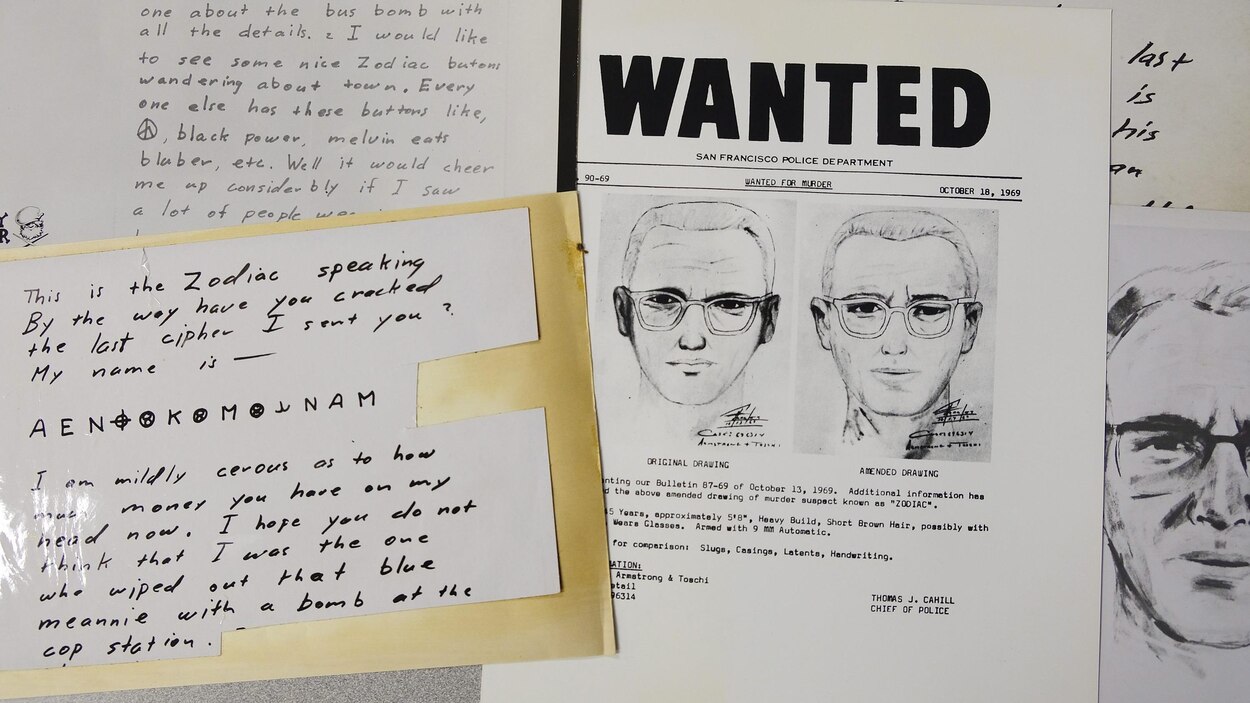 one about the bus bomb with
all the details. I would like
to see some nice Zodiac butons
wandering about town. Every
one else has these buttons like,
black power, melvin eats
bluber, etc. Well it would cheer
me up considerbly if I saw
a lot of people
This is the Zodiac speaking
By the way have you cracked
the last cipher I sent you?
My name is —
A E N ⌖ K M N A M
I am mildly cerous as to how
much money you have on my
head now. I hope you do not
think that I was the one
who wiped out that blue
meannie with a bomb at the
cop station.
WANTED
SAN FRANCISCO POLICE DEPARTMENT
90-69 WANTED FOR MURDER OCTOBER 18, 1969
ORIGINAL DRAWING AMENDED DRAWING
our Bulletin 87-69 of October 13, 1969. Additional information has
the above amended drawing of murder suspect known as "ZODIAC".
Years, approximately 5'8", Heavy Build, Short Brown Hair, possibly with
Wears Glasses. Armed with 9 MM Automatic.
for comparison: Slugs, Casings, Latents, Handwriting.
Armstrong & Toschi
96314
THOMAS J. CAHILL
CHIEF OF POLICE
last
is